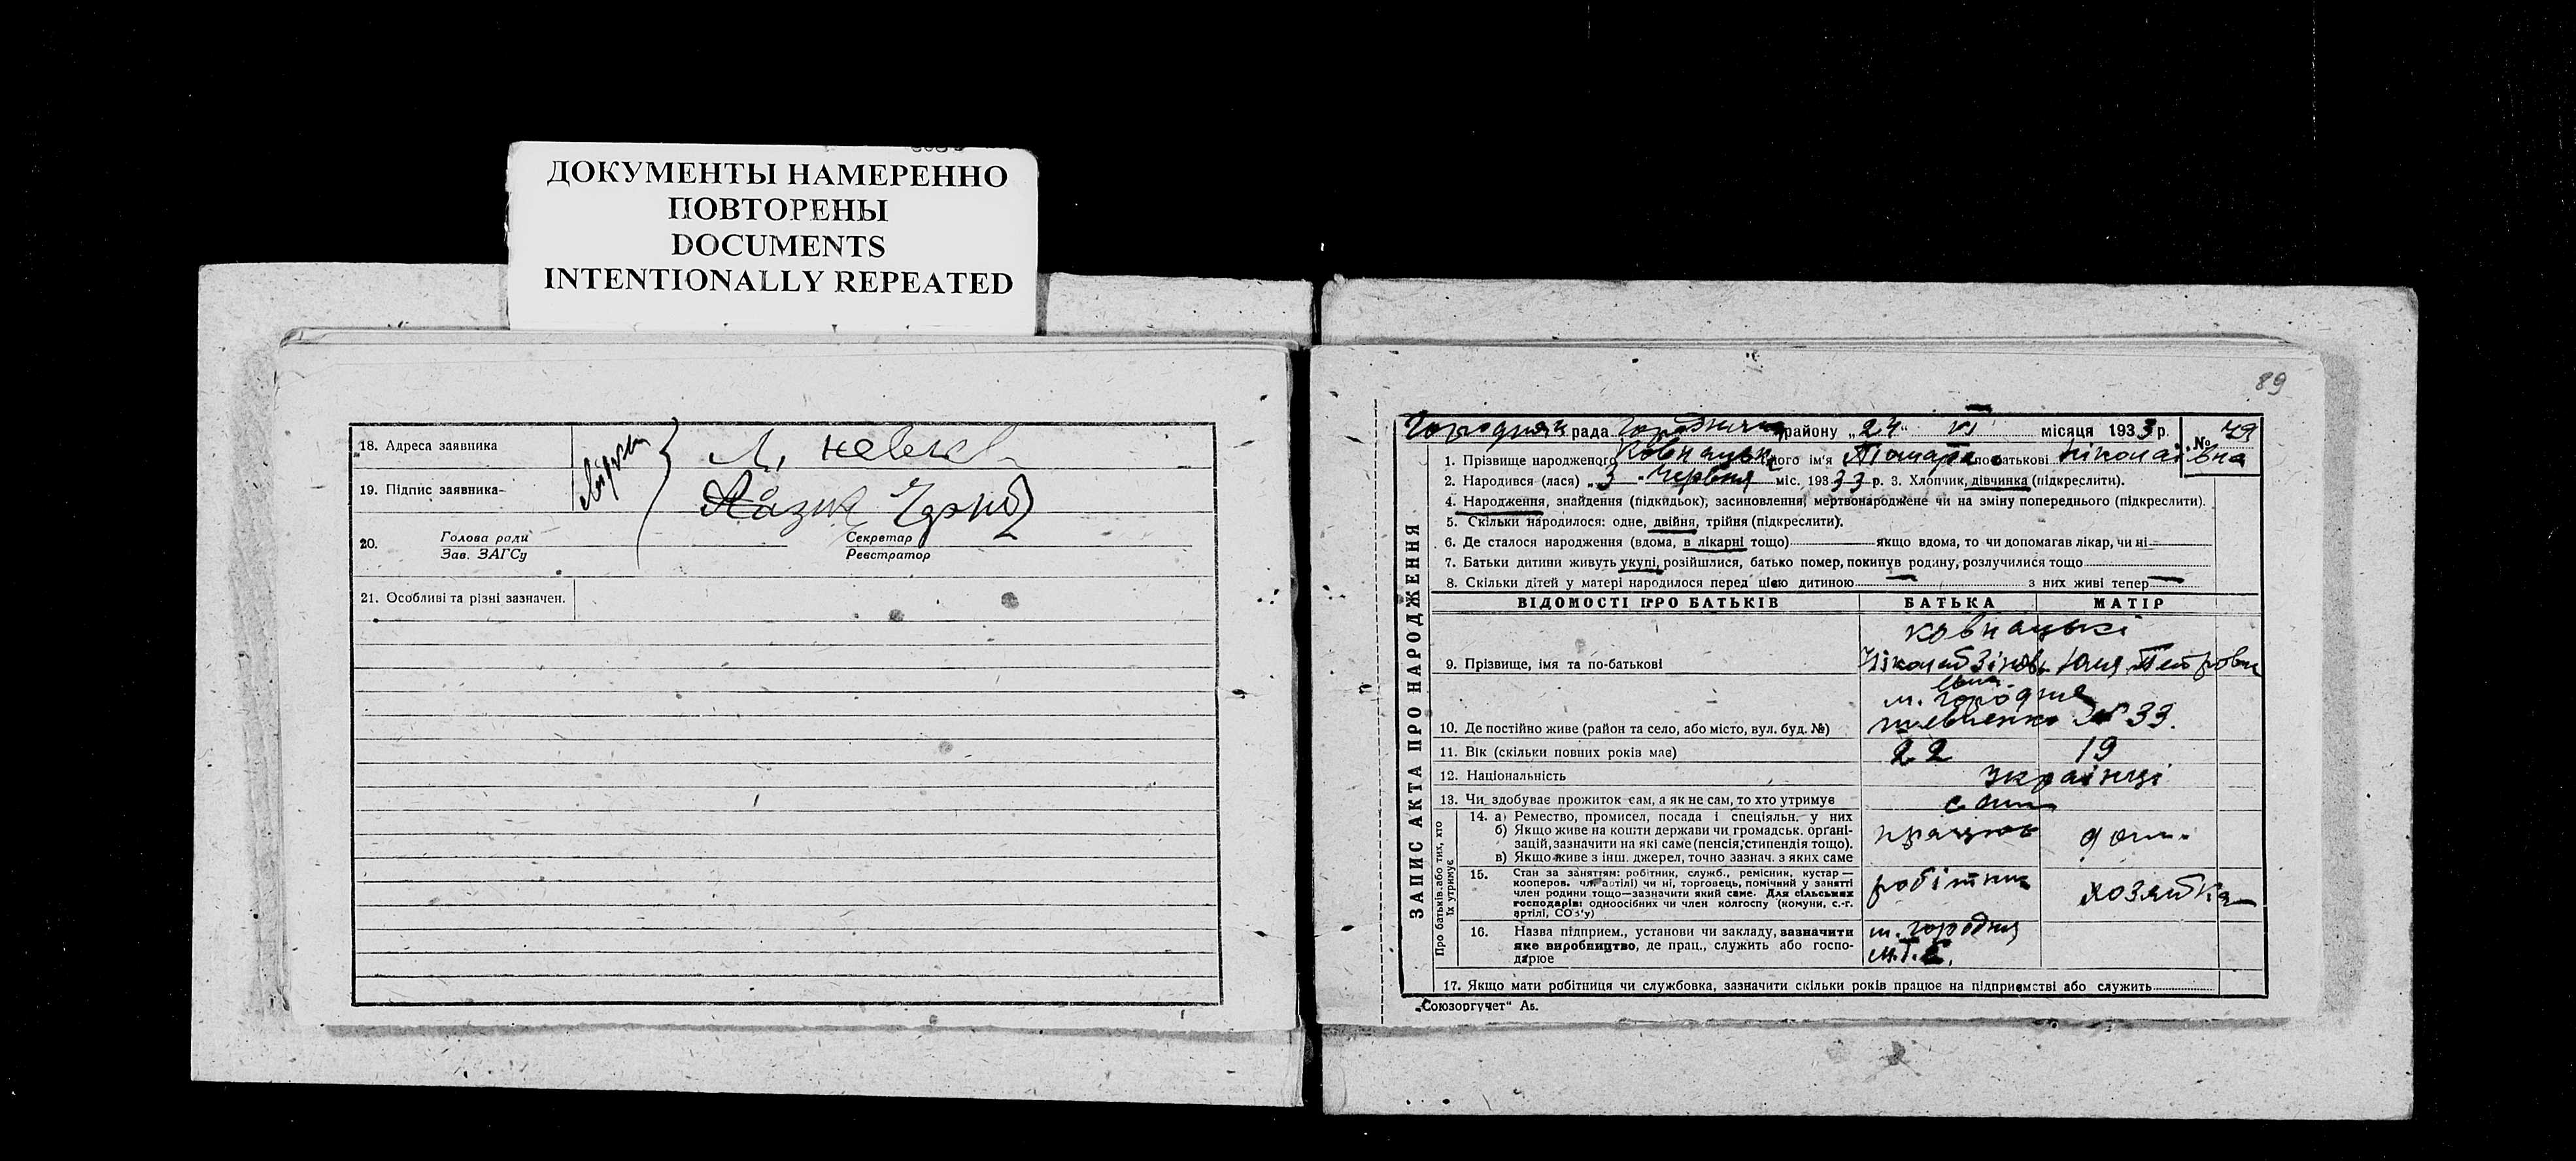 ДОКУМЕНТЫ НАМЕРЕННО
ПОВТОРЕНЫ
DOCUMENTS
INTENTIONALLY REPEATED
18. Адреса заявника
19. Підпис заявника
20. Голова ради Секретар
Зав. ЗАГСу Реєстратор
21. Особливі та різні зазначен.
89
рада району „24“ VI місяця 1933 р. № 49
1. Прізвище народженого його ім'я Тамара по батькові Ніколаївна
2. Народився (лася) „3“ червня міс. 1933 р. 3. Хлопчик, дівчинка (підкреслити).
4. Народження, знайдення (підкидьок), засиновлення, мертвонароджене чи на зміну попереднього (підкреслити).
5. Скільки народилося: одне, двійня, трійня (підкреслити).
6. Де сталося народження (вдома, в лікарні тощо) якщо вдома, то чи допомагав лікар, чи ні
7. Батьки дитини живуть укупі, розійшлися, батько помер, покинув родину, розлучилися тощо
8. Скільки дітей у матері народилося перед цією дитиною з них живі тепер
ЗАПИС АКТА ПРО НАРОДЖЕННЯ
ВІДОМОСТІ ПРО БАТЬКІВ БАТЬКА МАТІР
Ковнацькі
9. Прізвище, імя та по-батькові Петровна
м. Городня
10. Де постійно живе (район та село, або місто, вул. буд. №) Шевченко № 33.
11. Вік (скільки повних років має) 22 19
12. Національність українці
13. Чи здобуває прожиток сам, а як не сам, то хто утримує сам
Про батьків або тих, хто їх утримує
14. а) Ремество, промисел, посада і спеціяльн. у них
б) Якщо живе на кошти держави чи громадськ. органі-
зацій, зазначити на які саме (пенсія, стипендія тощо). дом.
в) Якщо живе з інш. джерел, точно зазнач. з яких саме
15. Стан за заняттям: робітник, служб., ремісник, кустар —
кооперов. чл. артілі) чи ні, торговець, помічний у занятті
член родини тощо—зазначити який саме. Для сільських
господарів: одноосібних чи член колгоспу (комуни, с.-г.
артілі, СОЗ'у) робітник хозяйка
16. Назва підприєм., установи чи закладу, зазначити м. Городня
яке виробництво, де прац., служить або госпо-
дарює М.Т.С.
17. Якщо мати робітниця чи службовка, зазначити скільки років працює на підприємстві або служить
„Союзоргучет“ А5.